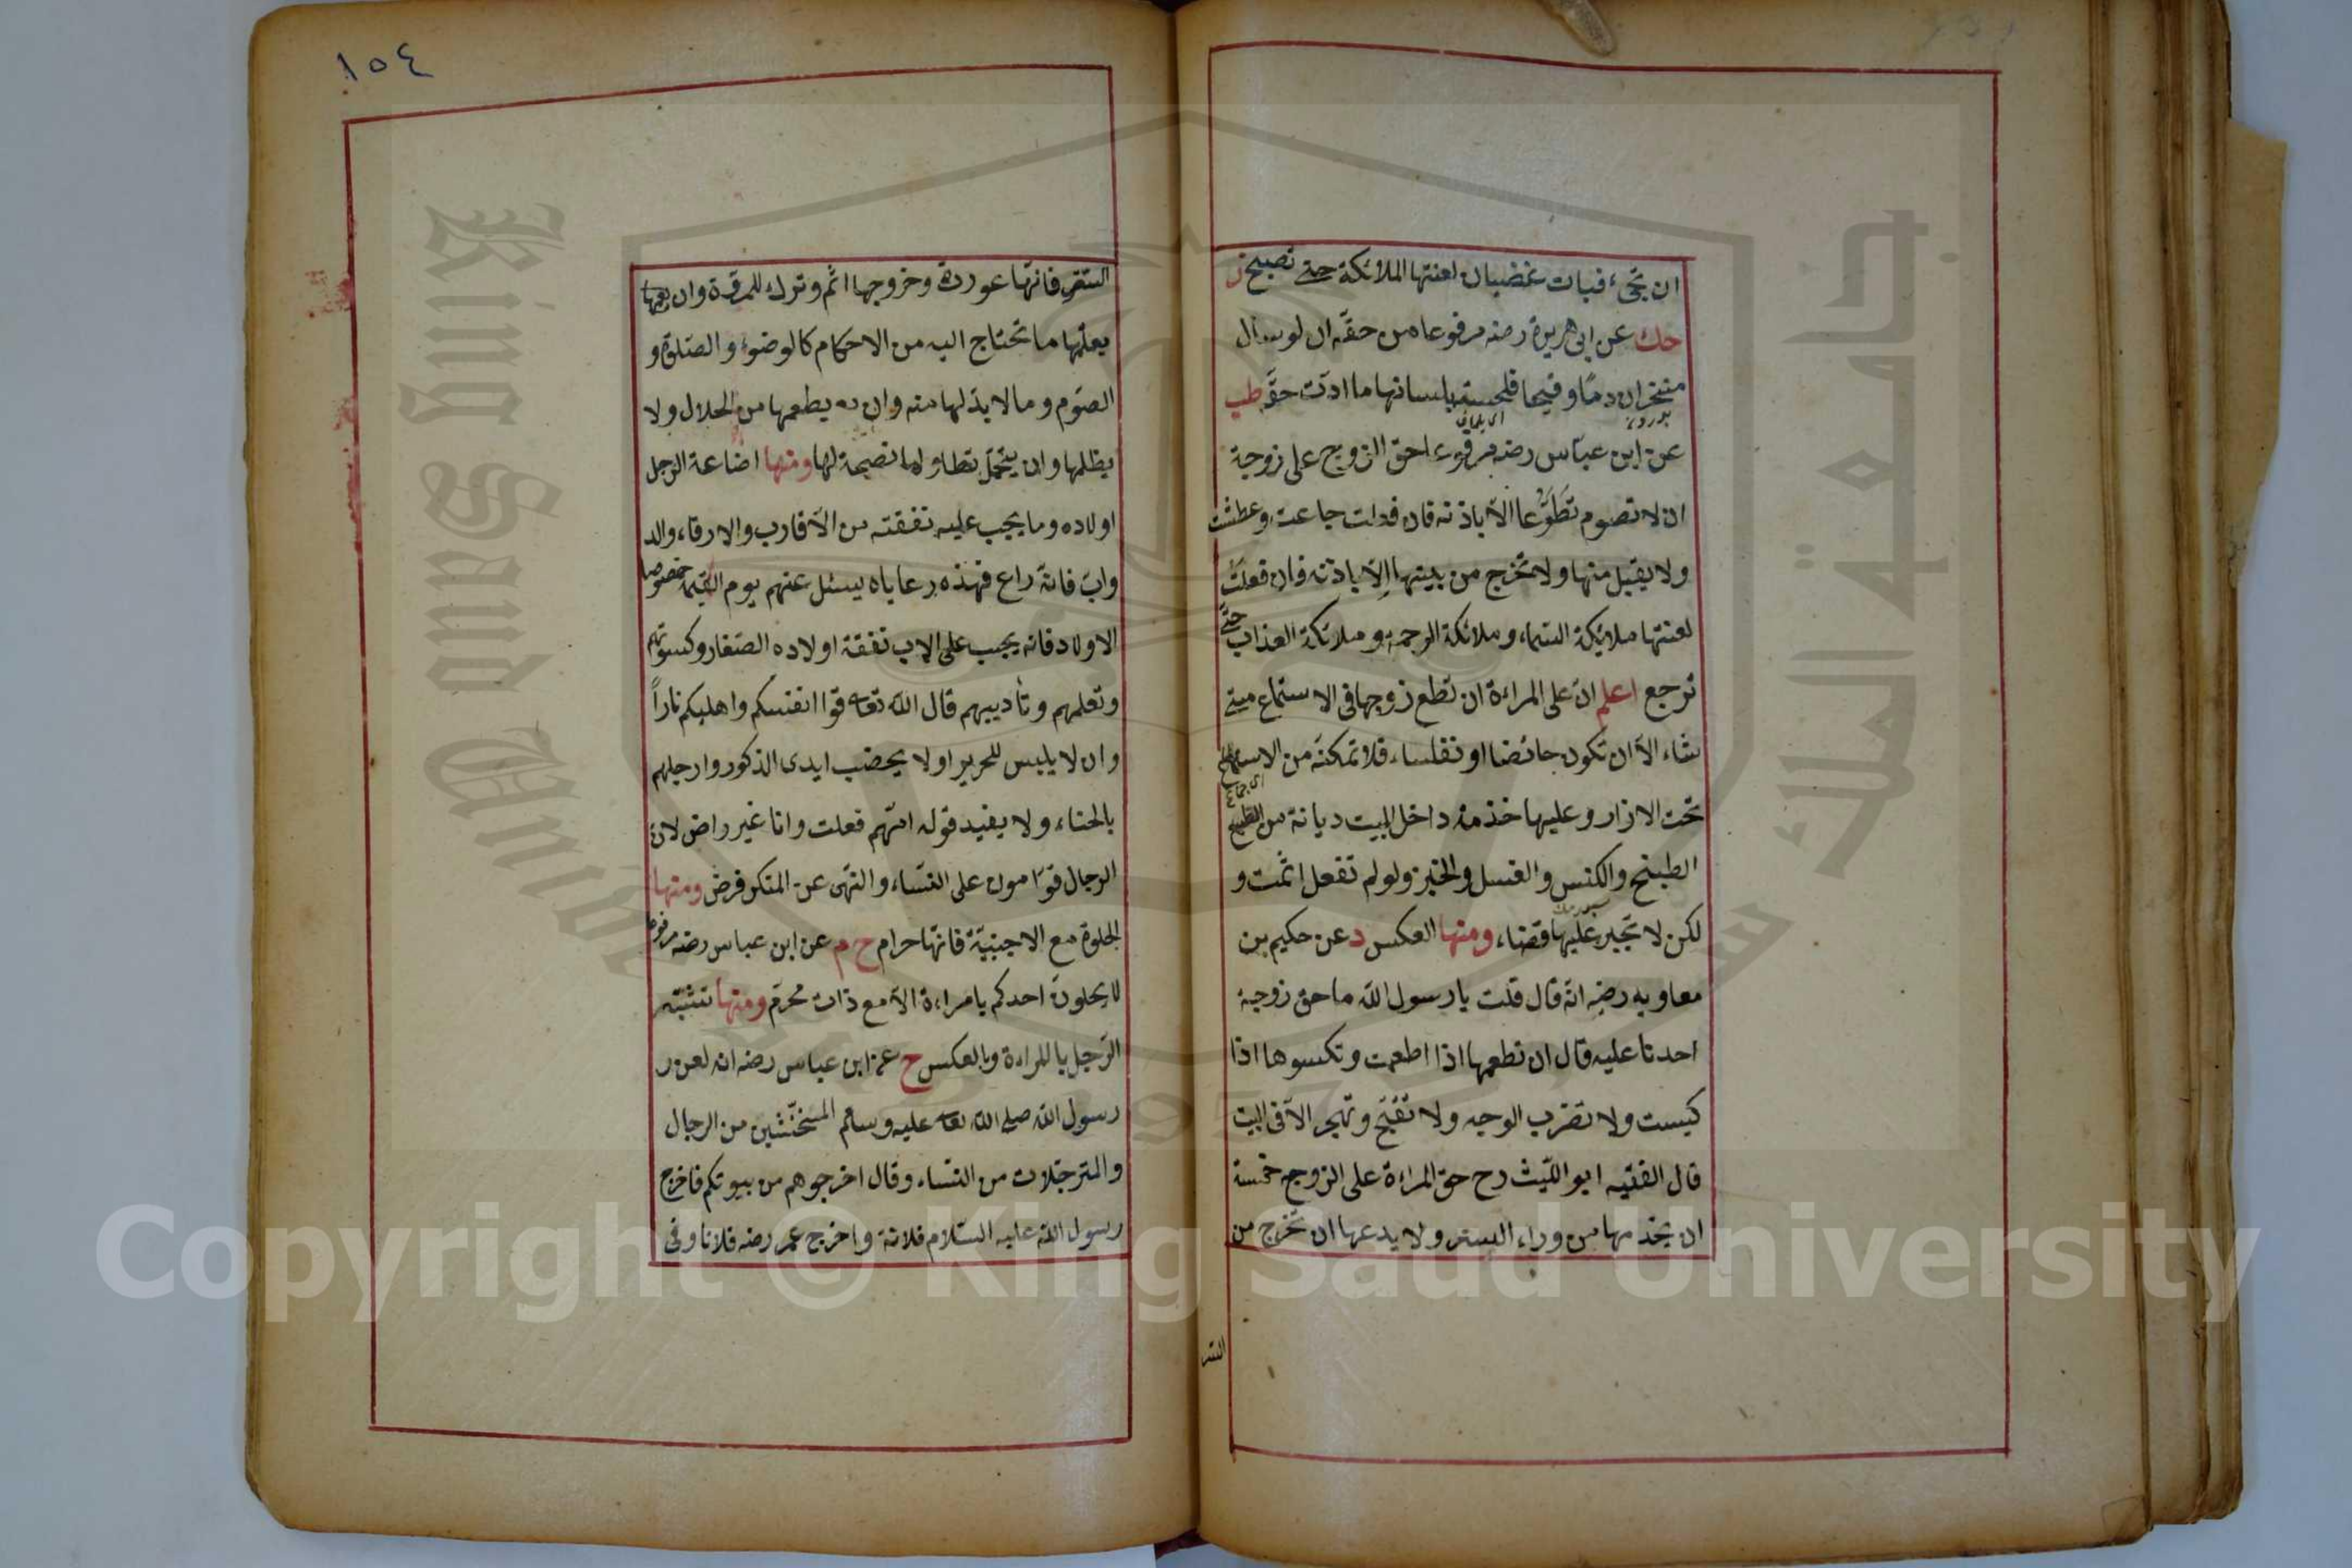 ان تجئ فبات غضبان لعنتها الملائكة حتى تصبح ز
حك عن ابى هريرة رضه مرفوعا من حقه ان لو سال
منخران دما وقيحا فلحسته بلسانها ما ادت حقه طب
عن ابن عباس رضه مرفوعا حق الزوج على زوجة
ان لا تصوم تطوعا الا باذنه فان فعلت جاعت وعطشت
ولا يقبل منها ولا تخرج من بيتها الا باذنه فان فعلت
لعنتها ملائكة السماء وملائكة الرحمة وملائكة العذاب حتى
ترجع اعلم ان على المراءة ان تطع زوجها فى الاستماع متى
شاء الا ان تكون حائضا او نفلساء فلا تمكنه من الاستمتاع
اى جماع
تحت الازار وعليها خذمة داخل البيت ديانة من الطبخ
الطبنح والكنس والغسل والخبز ولو لم تفعل اثمت و
لكن لا تجبر عليها قضاء ومنها العكس د عن حكيم بن
معاويه رضه انه قال قلت يا رسول الله ما حق زوجة
احدنا عليه قال ان تطعمها اذا اطعمت وتكسوها اذا
كيست ولا تضرب الوجه ولا تقبح وتهجر الا فى البيت
قال الفقيه ابو الليث رح حق المراءة على الزوج خمسة
ان يخدمها من وراء الستر ولا يدعها ان تخرج من
الستر
١٥٤
الستر فانها عورة وخروجها اثم وترك للمروة وان يعلمها
يعلمها ما تحتاج اليه من الاحكام كالوضوء والصلوة و
الصوم وما لا بد لها منه وان يطعمها من الحلال ولا
يظلمها وان يتحمل تطاولها نصيحة لها ومنها اضاعة الرجل
اولاده وما يجب عليه نفقته من الاقارب والارقاء والد
واب فانه راع فهذه رعاياه يسئل عنهم يوم القيمة خصوصا
الاولاد فانه يجب على الاب نفقة اولاده الصغار وكسوتهم
وتعلمهم وتأديبهم قال الله تعا قوا انفسكم واهليكم نارا
وان لا يلبس للحرير اولا يحضب ايدى الذكور وارجلهم
بالحناء ولا يفيد قوله انهم فعلت وانا غير راض لان
الرجال قوامون على النساء والنهى عن المنكر فرض ومنها
الخلوة مع الاجنبية فانها حرام خ م عن ابن عباس رضه مرفوعا
لا يخلون احدكم بامراءة الا مع ذات محرم ومنها تشبه
الرجل بالمراءة وبالعكس خ عن ابن عباس رضه انه لعن ر
رسول الله صلى الله تعا عليه وسلم المتخنثين من الرجال
والمترجلات من النساء وقال اخرجوهم من بيوتكم فاخرج
رسول الله عليه السلام فلانة واخرج عمر رضه فلانا وفى
King Saud University
جامعة الملك سعود
1957
Copyright © King Saud University